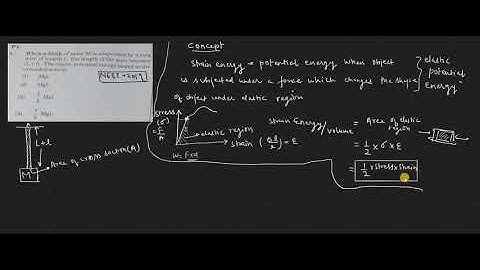 When a block of mass M is suspended by a long
wire of length L, the length of the wire becomes
(L + l). The elastic potential energy stored in the
extended wire is
(1) Mgl
(2) MgL
(3) 1/2 Mgl
(4) 1/2 MgL
Concept
Strain energy → potential energy when object
is subjected under a force which changes the shape
of object under elastic region
elastic
potential
energy
stress
(σ)
= F/A
elastic region
strain (Δl/l) = ε
Strain Energy/volume = Area of elastic
region
= 1/2 × σ × ε
= 1/2 × stress × strain
L+l
Area of cross section (A)
M